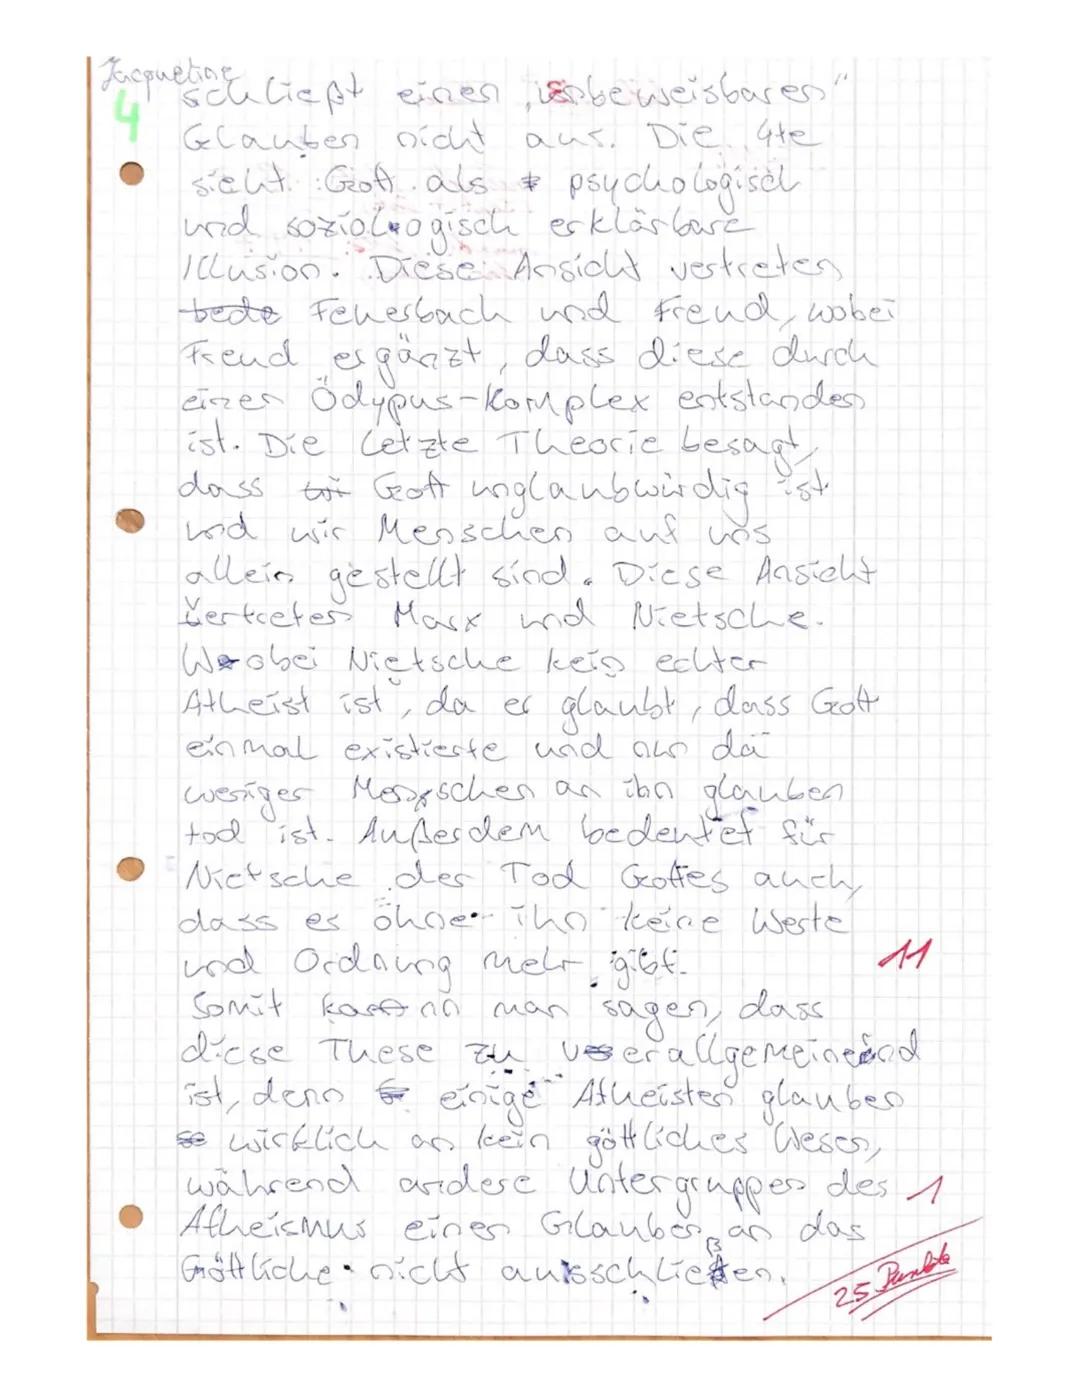 Jacqueline
4
schließt einen "unbeweisbaren"
Glauben nicht aus. Die 4te
sieht Gott als psychologisch
und soziologisch erklärbare
Illusion. Diese Ansicht vertreten
bede Feuerbach und Freud, wobei
Freud ergänzt, dass diese durch
einen Ödypus-Komplex entstanden
ist. Die letzte Theorie besagt,
dass Gott unglaubwürdig ist
und wir Menschen auf uns
allein gestellt sind. Diese Ansicht
vertreten Marx und Nietsche.
Wobei Nietsche kein echter
Atheist ist, da er glaubt, dass Gott
einmal existierte und nur da
weniger Menschen an ihn glauben
tod ist. Außerdem bedeutet für
Nietsche der Tod Gottes auch,
dass es ohne ihn keine Werte
und Ordnung mehr gibt.
11
Somit kann man sagen, dass
diese These zu verallgemeinernd
ist, denn einige Atheisten glauben
wirklich an kein göttliches Wesen,
während andere Untergruppen des
1
Atheismus einen Glauben an das
Göttliche nicht ausschließen.
25 Punkte